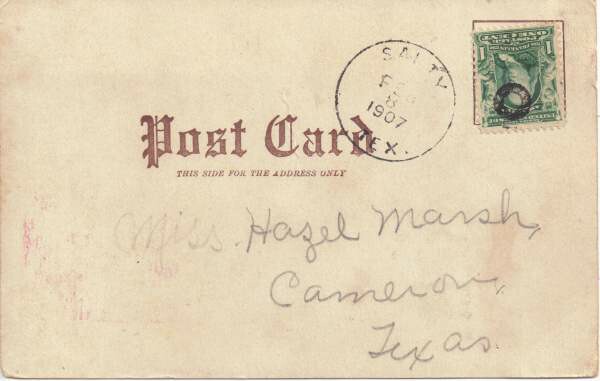 SALTY
FEB
8
1907
TEX.
Post Card
THIS SIDE FOR THE ADDRESS ONLY
Miss Hazel Marsh,
Cameron,
Texas.
POSTAGE
ONE CENT
1 1